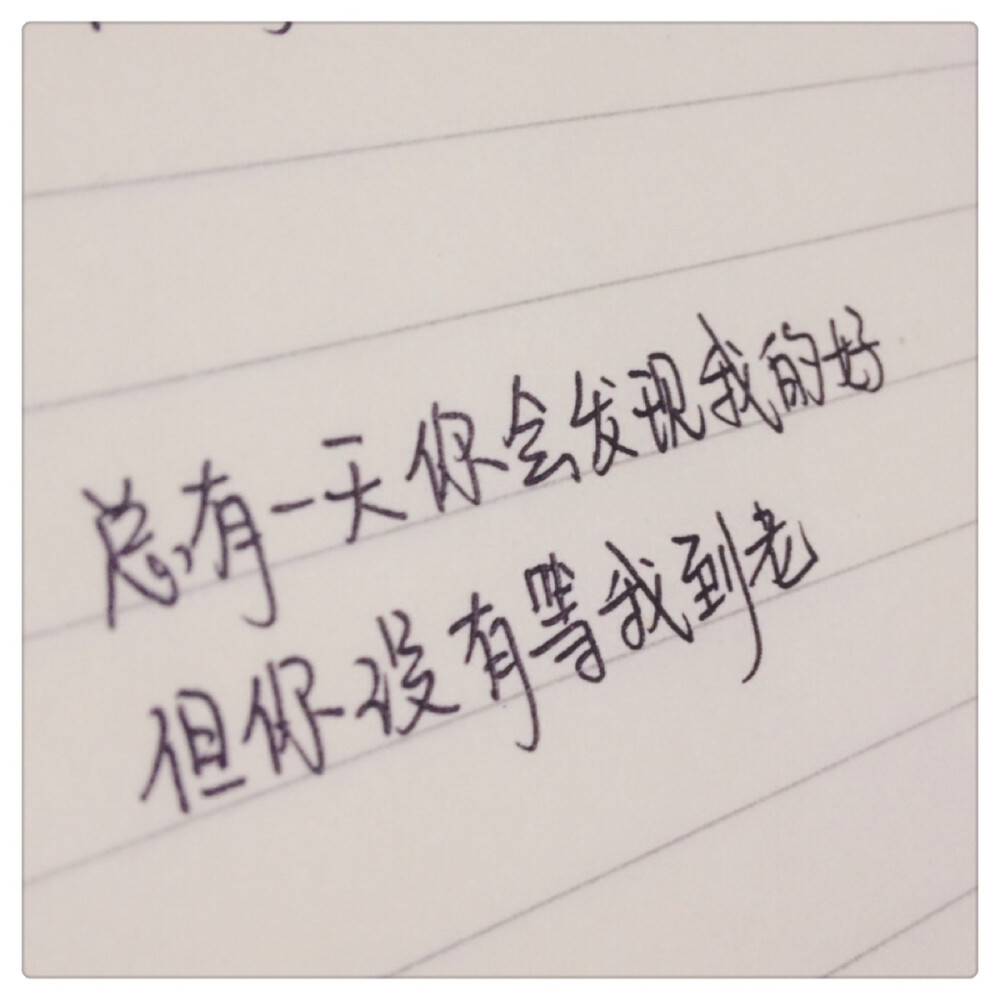 总有一天你会发现我的好
但你没有等我到老